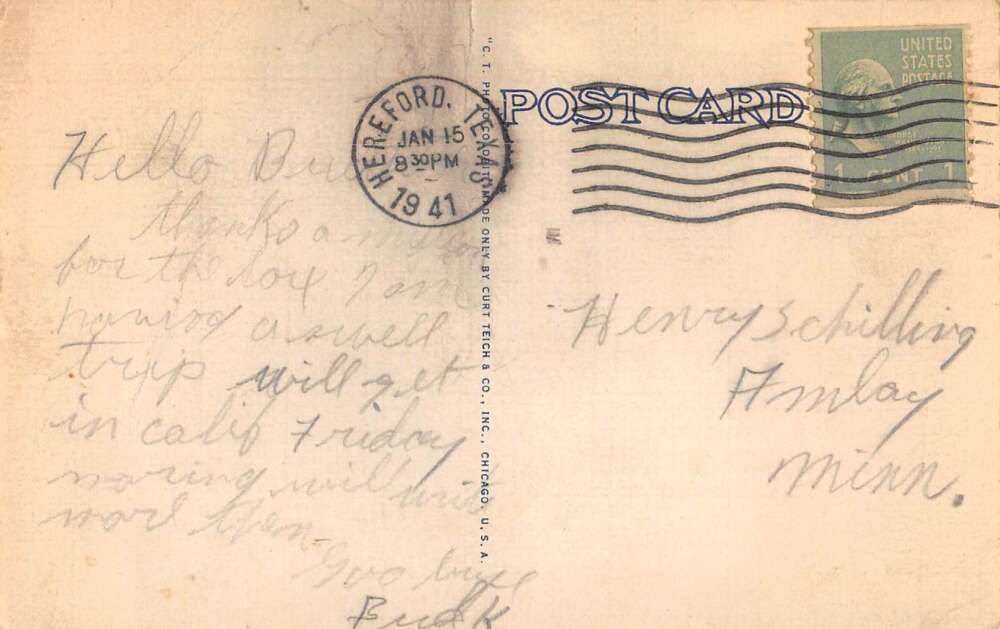 Hello
thanks a million
for the box I am
having a swell
trip will get
in calif Friday
moring will write
more then
Goo bye
Bud K
"C. T. PHOTO COLORIT" MADE ONLY BY CURT TEICH & CO., INC., CHICAGO, U. S. A.
POST CARD
HEREFORD, TEXAS
JAN 15
8 30 PM
1941
UNITED
STATES
POSTAGE
1 CENT 1
Henry Schilling
Minn.